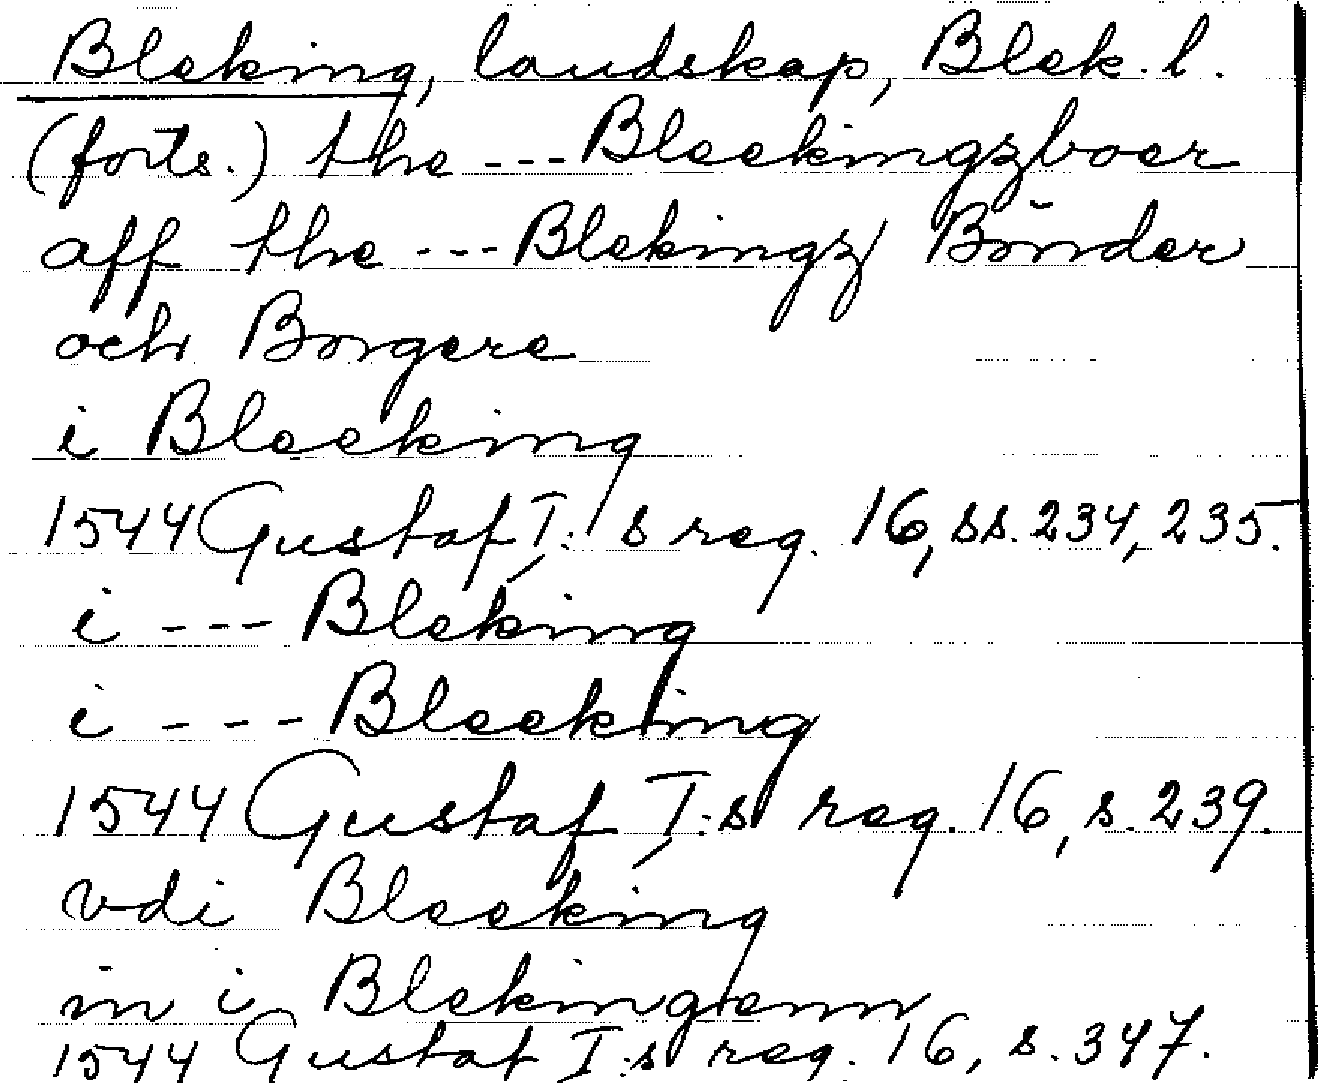 Bleking, landskap, Blek. l.
(forts.) the --- Bleekingzboer
aff the --- Blekingz Bönder
och Borgere
i Bleeking
1544 Gustaf I:s reg. 16, ss. 234, 235.
i --- Bleking
i --- Bleeking
1544 Gustaf I:s reg. 16, s. 239.
vdi Bleeking
in i Blekingenn
1544 Gustaf I:s reg. 16, s. 347.